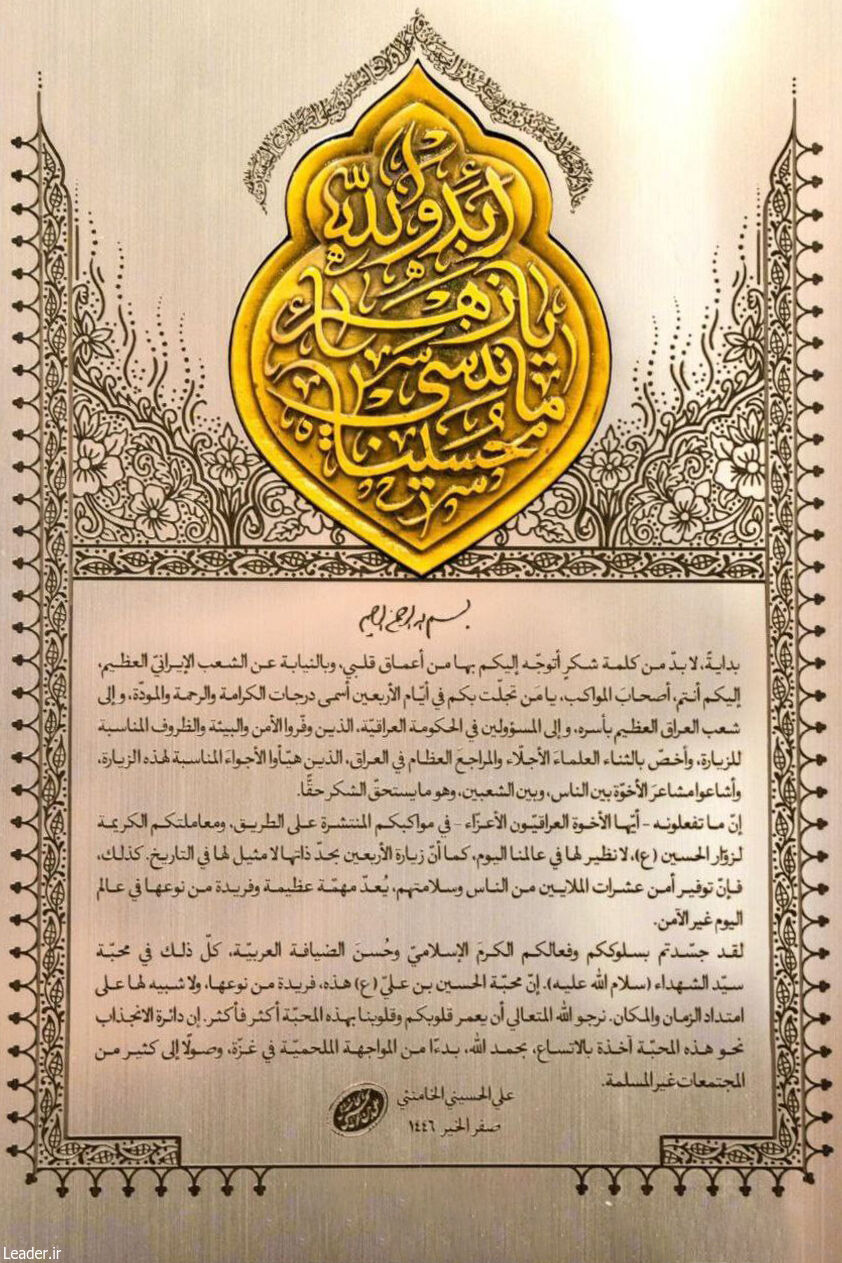 أبد والله
يا زهراء
ما ننسى
حسيناه
بسم الله الرحمن الرحيم
بدايةً، لا بدّ من كلمة شكرٍ أتوجّه إليكم بها من أعماق قلبي، وبالنيابة عن الشعب الإيرانيّ العظيم،
إليكم أنتم، أصحابَ المواكب، يا مَن تجلّت بكم في أيّام الأربعين أسمى درجات الكرامة والرحمة والمودّة، وإلى
شعب العراق العظيم بأسره، وإلى المسؤولين في الحكومة العراقيّة، الذين وفّروا الأمن والبيئة والظروف المناسبة
للزيارة، وأخصّ بالثناء العلماءَ الأجلّاء والمراجعَ العظام في العراق، الذين هيّأوا الأجواءَ المناسبة لهذه الزيارة،
وأشاعوا مشاعرَ الأخوّة بين الناس، وبين الشعبين، وهو ما يستحقّ الشكر حقًّا.
إنّ ما تفعلونه - أيّها الأخوة العراقيّون الأعزّاء - في مواكبكم المنتشرة على الطريق، ومعاملتكم الكريمة
لزوّار الحسين (ع)، لا نظير لها في عالمنا اليوم، كما أنّ زيارة الأربعين بحدّ ذاتها لا مثيل لها في التاريخ. كذلك،
فإنّ توفير أمن عشرات الملايين من الناس وسلامتهم، يُعدّ مهمّة عظيمة وفريدة من نوعها في عالم
اليوم غير الآمن.
لقد جسّدتم بسلوككم وفعالكم الكرمَ الإسلاميّ وحُسنَ الضيافة العربيّة، كلّ ذلك في محبّة
سيّد الشهداء (سلام الله عليه). إنّ محبّة الحسين بن عليّ (ع) هذه، فريدة من نوعها، ولا شبيه لها على
امتداد الزمان والمكان. نرجو الله المتعالي أن يعمر قلوبكم وقلوبنا بهذه المحبّة أكثر فأكثر. إن دائرة الانجذاب
نحو هذه المحبّة آخذة بالاتساع، بحمد الله، بدءًا من المواجهة الملحميّة في غزّة، وصولًا إلى كثير من
المجتمعات غير المسلمة.
علي الحسيني الخامنئي
صفر الخير ١٤٤٦
Leader.ir